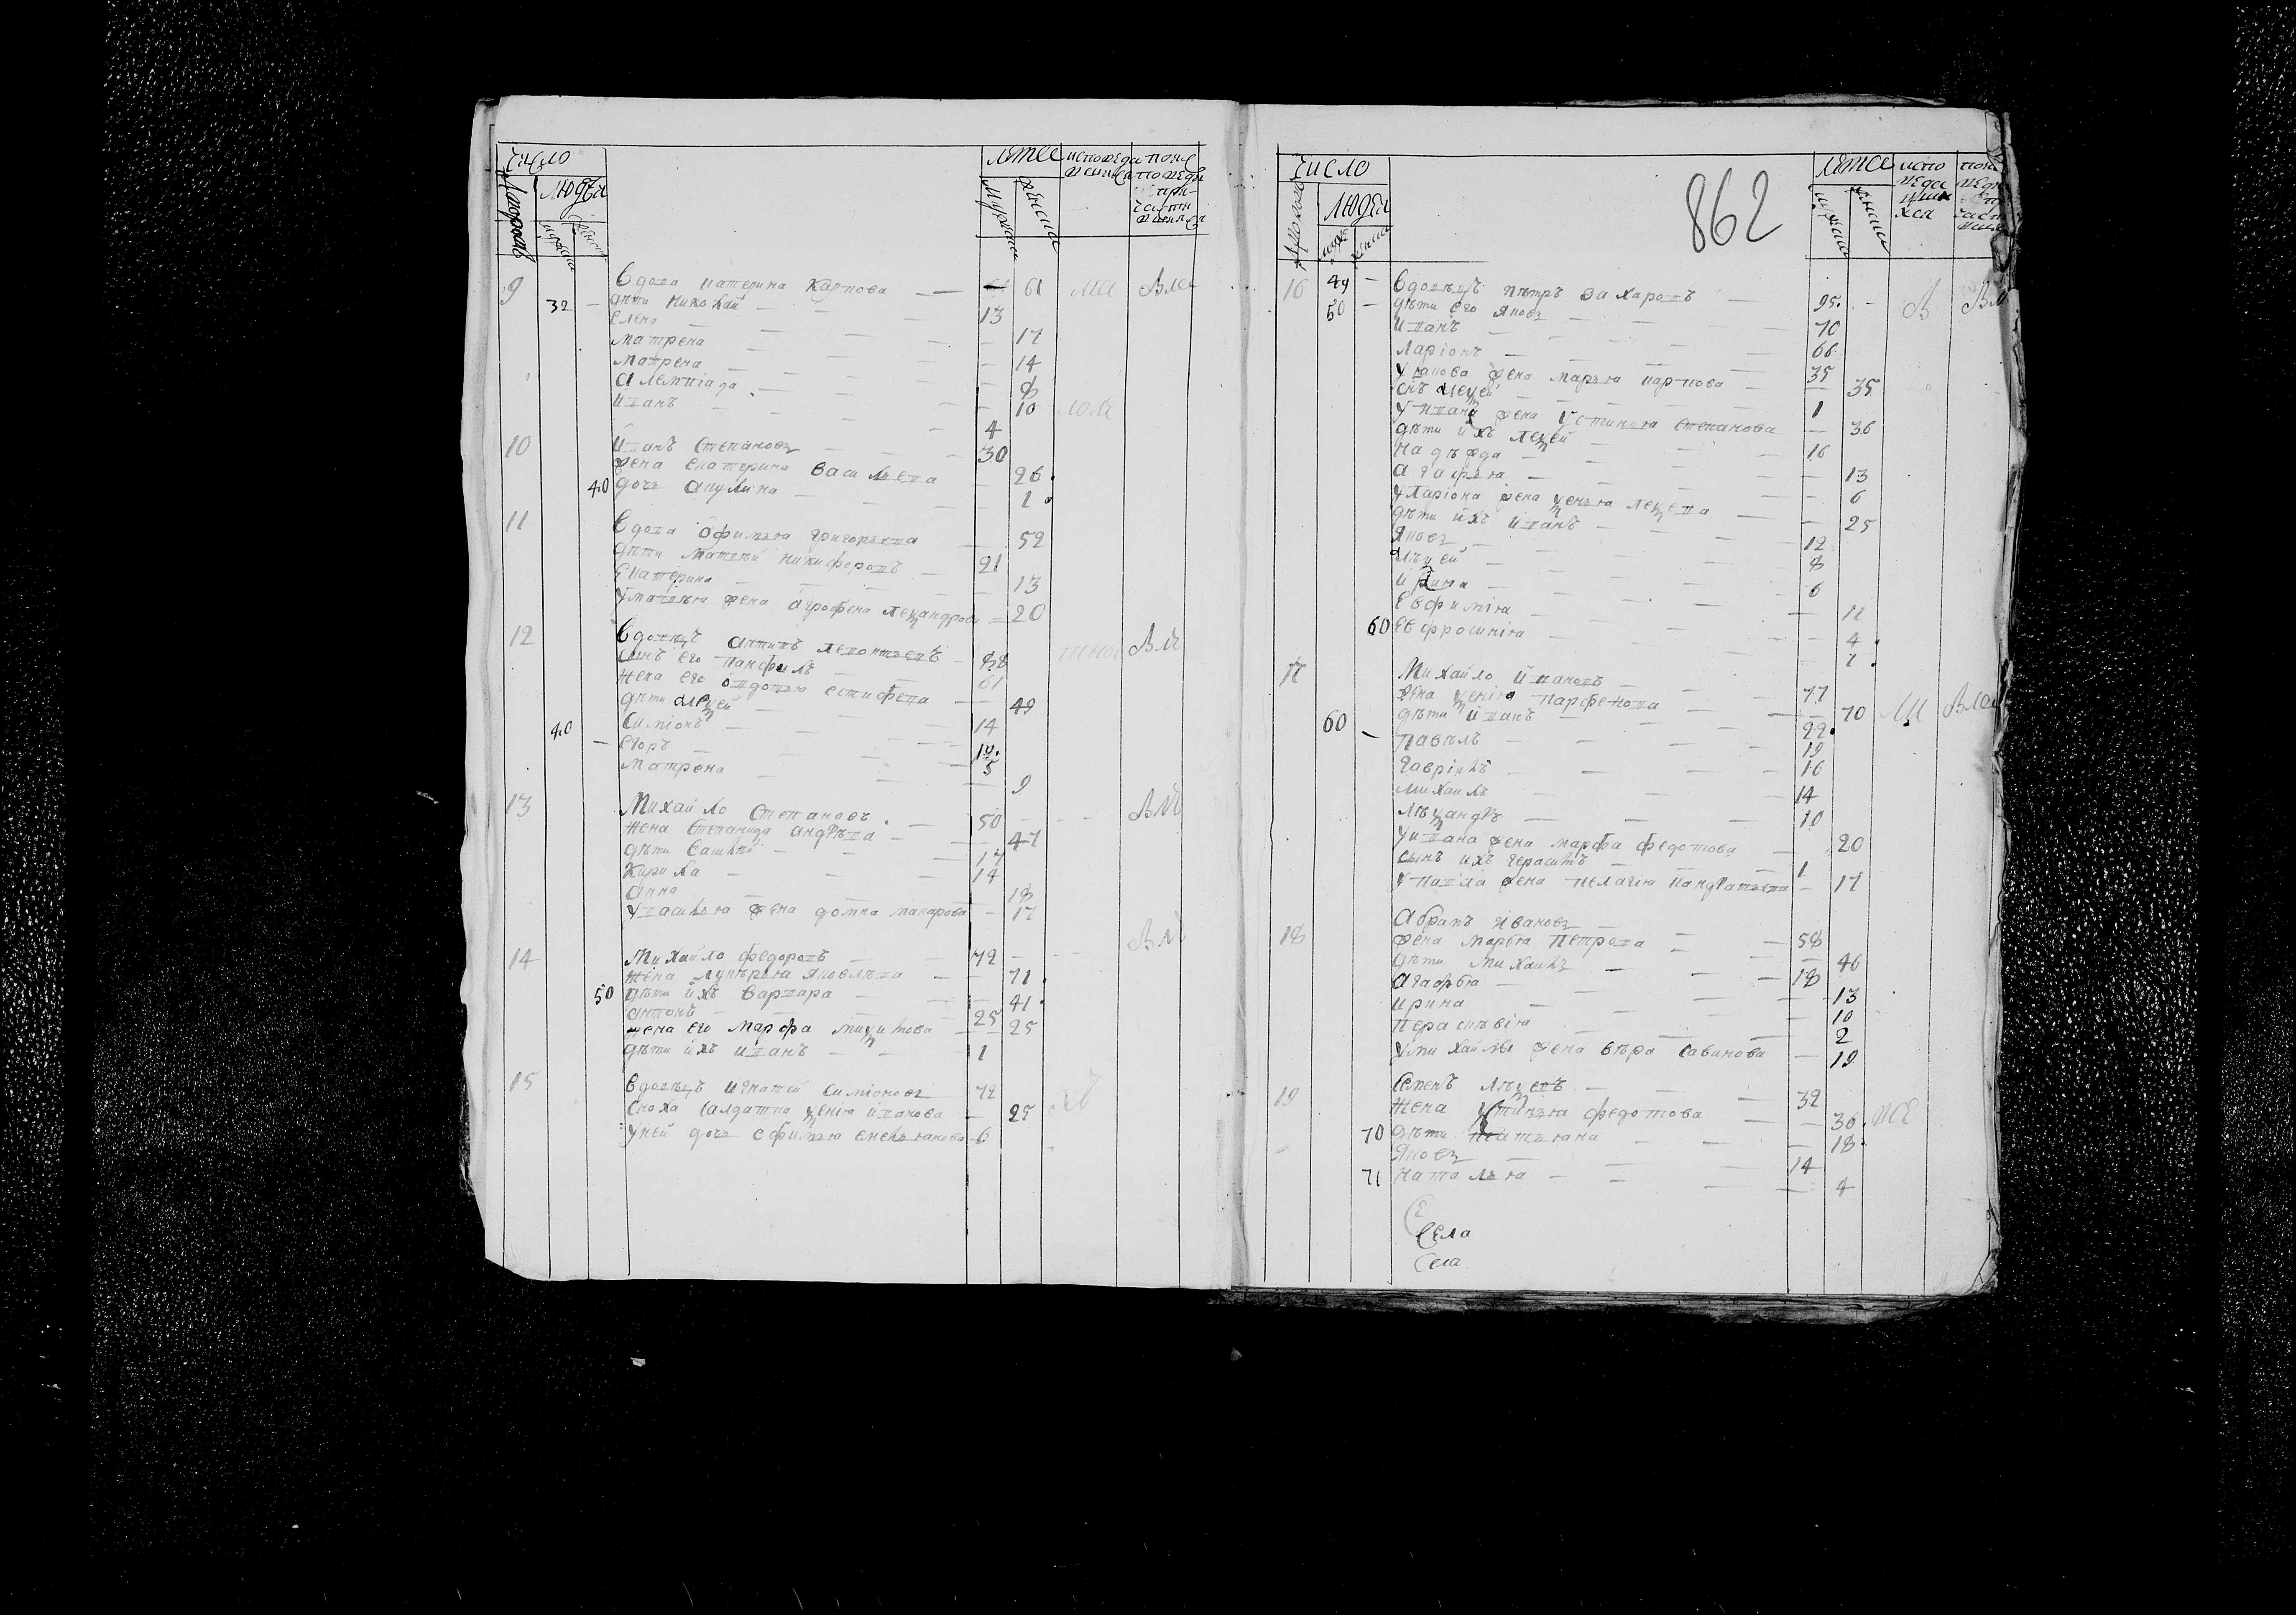 число
людей
лѣта
9 Вдова катерина Карпова — 61
32 — дѣти николай 13
Елена 17
матрена 14
матрена 8
алемпіада 10
иванъ 4
10 иванъ Степановъ 30
жена екатерина васильева 26
40 дочь акулина 1
11 Вдова офимья григорьева 52
дѣти матвей никифоровъ 21
екатерина 13
у матвѣя жена агрофена лезандрова 20
12 Вдовецъ антипъ левонтьевъ 88
сынъ его панфилъ 61
жена его овдотья естифева 49
дѣти алезей 14
40 — симіонъ 10
егоръ 5
матрена 9
13 Михайло Степановъ 50
жена степанида андрѣева 47
дѣти василей 17
Кирила 14
анна 18
у василья жена домна макарова 17
14 Михайло федоровъ 72
жена лукѣрья яковлѣва 71
50 дѣти ихъ варвара 41
антонъ 25
жена его марфа микитова 25
дѣти ихъ иванъ 1
15 вдовецъ игнатей симіоновъ 72
сноха салдатка зенія иванова 25
у ней дочь офимья емельянова 6
число
людей
лѣта
862
16 49 — Вдовецъ пѣтръ захаровъ 95
50 — дѣти его яковъ 70
иванъ 66
ларіонъ 35
у якова жена марья карпова 35
сынъ алезей 1
у ивана жена устинья степанова 36
дѣти ихъ лезей 16
надѣжда 13
агафья 6
у ларіона жена зенья лезева 25
дѣти ихъ иванъ 12
яковъ 8
алѣзей 6
ирина 11
евфимія 4
60 евфросинія 1
17 Михайло ивановъ 77
жена зенія парфенова 70
60 — дѣти иванъ 22
павѣлъ 19
гавріилъ 16
михаилъ 14
лѣзандръ 10
у ивана жена марфа федотова 20
сынъ ихъ герасимъ 1
у павла жена пелагія пандратьева 17
18 абрамъ ивановъ 58
жена марья петрова 46
дѣти михаилъ 18
агафья 13
ирина 10
перасковія 2
у михайлы жена вѣра савинова 19
19 Семенъ лѣзевъ 39
жена устинья федотова 36
70 дѣти татьяна 18
яковъ 14
71 наталья 4
Села
Села